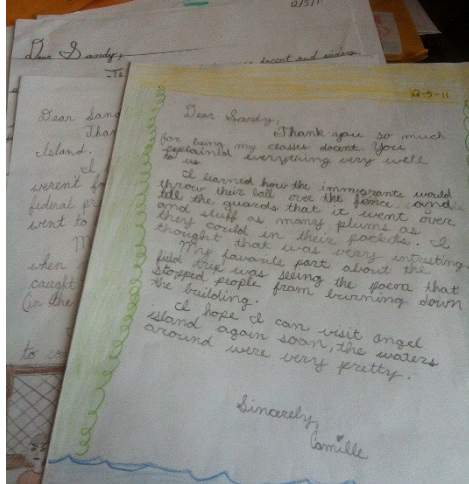 12/5/11
Dear Sandy,
docent and
Dear Sand
Than
Island.
I
werent f
federal pr
went to
M
when
caught
(in the
to co
2-5-11
Dear Sandy,
Thank you so much
for being my classes docent. You
explained everything very well
to us.
I learned how the immigrants would
throw their ball over the fence and
tell the guards that it went over
and stuff as many plums as
they could in their pockets. I
thought that was very intresting
My favorite part about the
field trip was seeing the poem that
stopped people from burning down
the building.
I hope I can visit angel
island again soon, the waters
around were very pretty.
Sincerely,
Camille